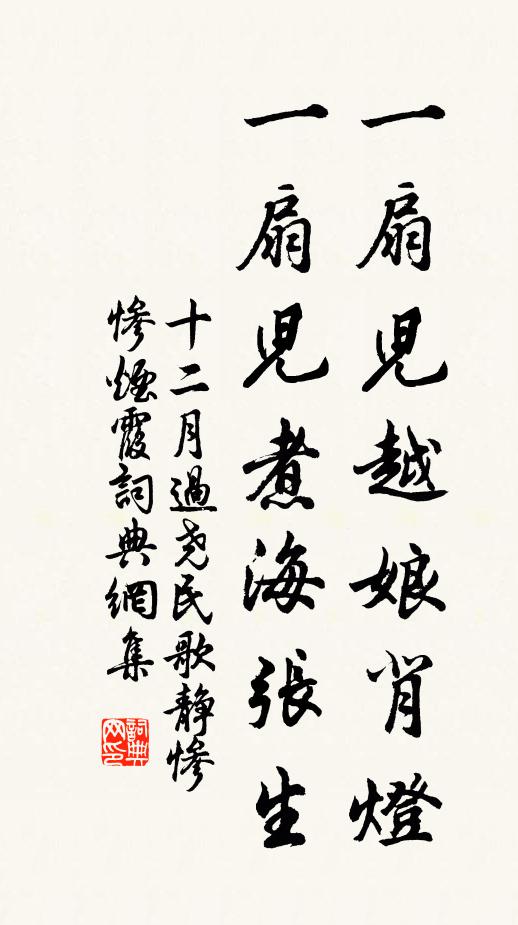 一扇兒越娘背燈
一扇兒煮海張生
十二月過尧民歌静惨
惨煙霞詞典網集
詞典网印